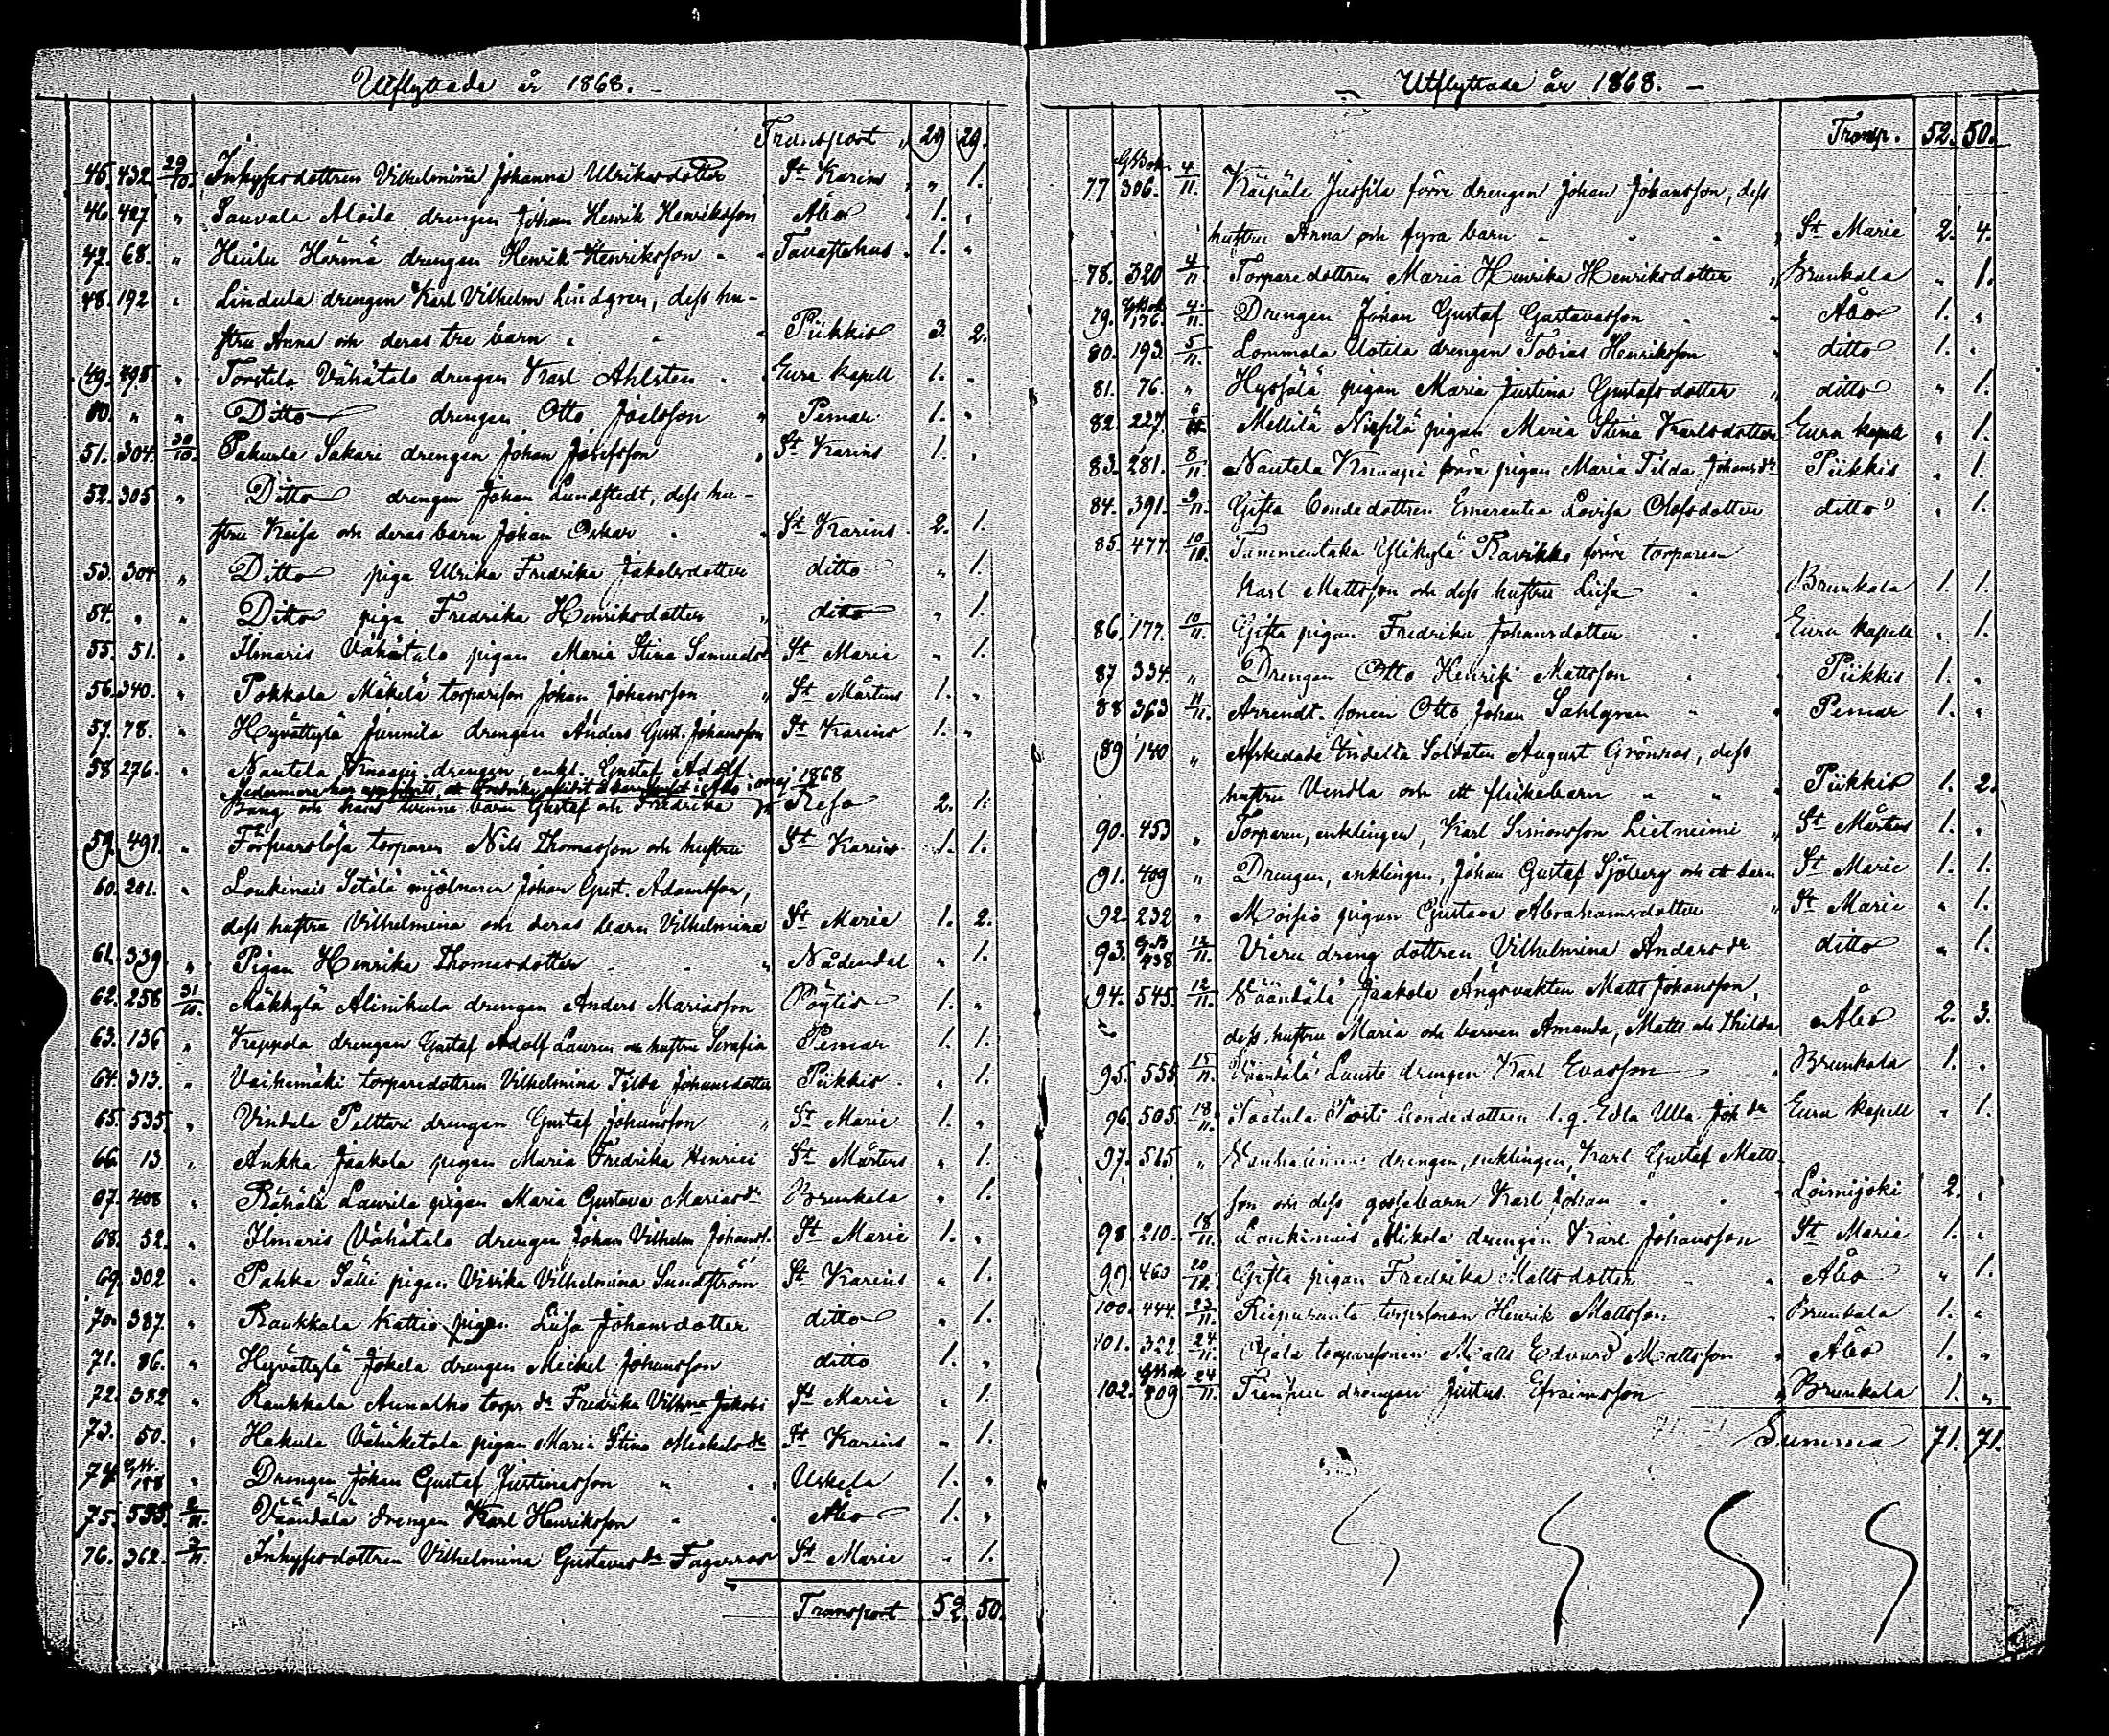 Utflyttade år 1868.
Transport " 29 29.
45. 432. 29/10. Inhysesdottren Vilhelmina Johanna Ulrikasdotter St Karins " 1.
46. 427 " Sauvala Moila drengen Johan Henrik Henriksson Åbo 1. "
47. 68. " Heulu Härmä drengen Henrik Henriksson " Tavastehus 1. "
48. 192 " Lindula drengen Karl Vilhelm Lindgren, dess hu-
stru Anna och deras tre barn " " Piikkis 3. 2.
49. 498 " Torstela Vähätalo drengen Karl Ahlsten " Eura kapell 1. "
50. " " Ditto drengen Otto Joelsson " Pemar 1. "
51. 304. 30/10. Pakurla Sakari drengen Johan Josefsson " St Karins 1. "
52. 305 " Ditto drengen Johan Lundstedt, dess hu-
stru Kaisa och deras barn Johan Oskar " St Karins 2. 1.
53. 304 " Ditto piga Ulrika Fredrika Jakobsdotter ditto " 1.
54. " " Ditto piga Fredrika Henriksdotter " ditto " 1.
55. 51. " Ilmaris Vähätalo pigan Maria Stina Samuelsd. St Marie " 1.
56. 340. " Pokkola Mäkelä torparson Johan Johansson " St Mårtens 1. "
57. 78. " Hyvättylä Junnila drengen Anders Gust. Johansson St Karins 1. "
58 276. " Nautela Knaapi drengen, enkl. Gustaf Adolf
1868
Bang och hans tvenne barn Gustaf och Fredrika Reso 2. 1.
59. 491. " Försvarslösa torparen Nils Thomasson och hustru St Karins 1. 1.
60. 201. " Loukinais Setälä mjölnaren Johan Gust. Adamsson,
dess hustru Vilhelmina och deras barn Vilhelmina St Marie 1. 2.
61. 339. " Pigan Henrika Thomasdotter " Nådendal " 1.
62. 258 31/10. Mäkkylä Alinikula drengen Anders Mariasson Pöytis 1. "
63. 136 " Kreppola drengen Gustaf Adolf Lauren och hustru Serafia Pemar 1. 1.
64. 313. " Vaihemäki torparedottren Vilhelmina Tilda Johansdotter Piikkis " 1.
65. 535. " Vindala Pelttari drengen Gustaf Johansson " St Marie 1. "
66. 13. " Ankka Jaakola pigan Maria Fredrika Henrici St Mårtens " 1.
67. 408 " Rähälä Laurila pigan Maria Gustava Mariasdr Brunkala " 1.
68. 52. " Ilmaris Vähätalo drengen Johan Vilhelm Johanss. St Marie 1. "
69. 302 " Pahka Sälli pigan Vivika Vilhelmina Sundström St Karins " 1.
70. 387. " Raukkala Kattio pigan Liisa Johansdotter ditto " 1.
71. 86. " Hyvättylä Jokela drengen Mickel Johansson ditto 1. "
72. 382 " Raukkala Aunalho torpr dr Fredrika Vilhma Jakobs St Marie " 1.
73. 50. " Hakula Vähäketola pigan Maria Stina Mickelsdr St Karins " 1.
74. 188 " Drengen Johan Gustaf Justinasson " Uskela 1. "
75. 555. 2/11. Väändälä drengen Karl Henriksson " Åbo 1. "
76. 362. 3/11. Inhysesdottren Vilhelmina Gustavasdr Fagerros St Marie " 1.
Transport 52. 50.
Utflyttade år 1868.
Transp. 52. 50.
77 306. 4/11. Käipälä Jussila förre drengen Johan Johansson, dess
hustru Anna och fyra barn " " " St Marie 2. 4.
78. 320 4/11. Torparedottren Maria Henrika Henriksdotter " Brunkala " 1.
79. 176. 4/11. Drengen Johan Gustaf Gustavasson " Åbo 1. "
80. 193. 5/11. Lommola Uotila drengen Tobias Henriksson " ditto 1. "
81. 76. " Hyssälä pigan Maria Justina Gustafsdotter " ditto " 1.
82. 227. 6/11. Mellilä Nissilä pigan Maria Stina Karlsdotter Eura kapell " 1.
83. 281. 8/11. Nautela Knaapi förra pigan Maria Tilda Johansdr Piikkis " 1.
84. 391. 9/11. Gifta bondedottren Emerentia Lovisa Olofsdotter ditto " 1.
85. 477. 10/10. Tammentaka Ylikylä Ravikko förre torparen
Karl Mattsson och dess hustru Liisa " Brunkala 1. 1.
86. 177. 10/11. Gifta pigan Fredrika Johansdotter " Eura kapell " 1.
87 334. " Drengen Otto Henrik Mattsson " Piikkis 1. "
88 363 11/11. Arrendt. sonen Otto Johan Sahlgren " Pemar 1. "
89. 140 " Afskedade Indelta Soldaten August Grönros, dess
hustru Vendla och ett flickebarn " " Piikkis 1. 2.
90. 453 " Torparen, enklingen, Karl Simonsson Lietniemi " St Mårtens 1. "
91. 409 " Drengen, enklingen, Johan Gustaf Sjöberg och ett barn St Marie 1. 1.
92. 232 " Moisio pigan Gustava Abrahamsdotter " St Marie " 1.
93. 438 12/11. Vieru dreng dottren Vilhelmina Andersdr ditto " 1.
94. 545. 12/11. Väändälä Jaakola Ängsvakten Matts Johansson,
dess hustru Maria och barnen Amanda, Matts och Thilda Åbo 2. 3.
95. 555 15/11. Väändälä Lauste drengen Karl Evasson " Brunkala 1. "
96. 505. 18/11. Torti bondedottren Edla Ulla Johdr Eura kapell " 1.
97. 515 " drengen, enklingen, Karl Gustaf Matts-
son och dess gossebarn Karl Johan " " Loimijoki 2. "
98 210. 18/11. Loukinais Mikola drengen Karl Johansson St Marie 1. "
99. 460 20/11. Gifta pigan Fredrika Mattsdotter " Åbo " 1.
100. 444. 23/11. Henrik Mattsson " Brunkala 1. "
101. 322. 24/11. torparesonen Matts Edvard Mattsson " Åbo 1. "
102. 509 24/11. drengen Justus Efraimsson " Brunkala 1. "
Summa 71. 71.